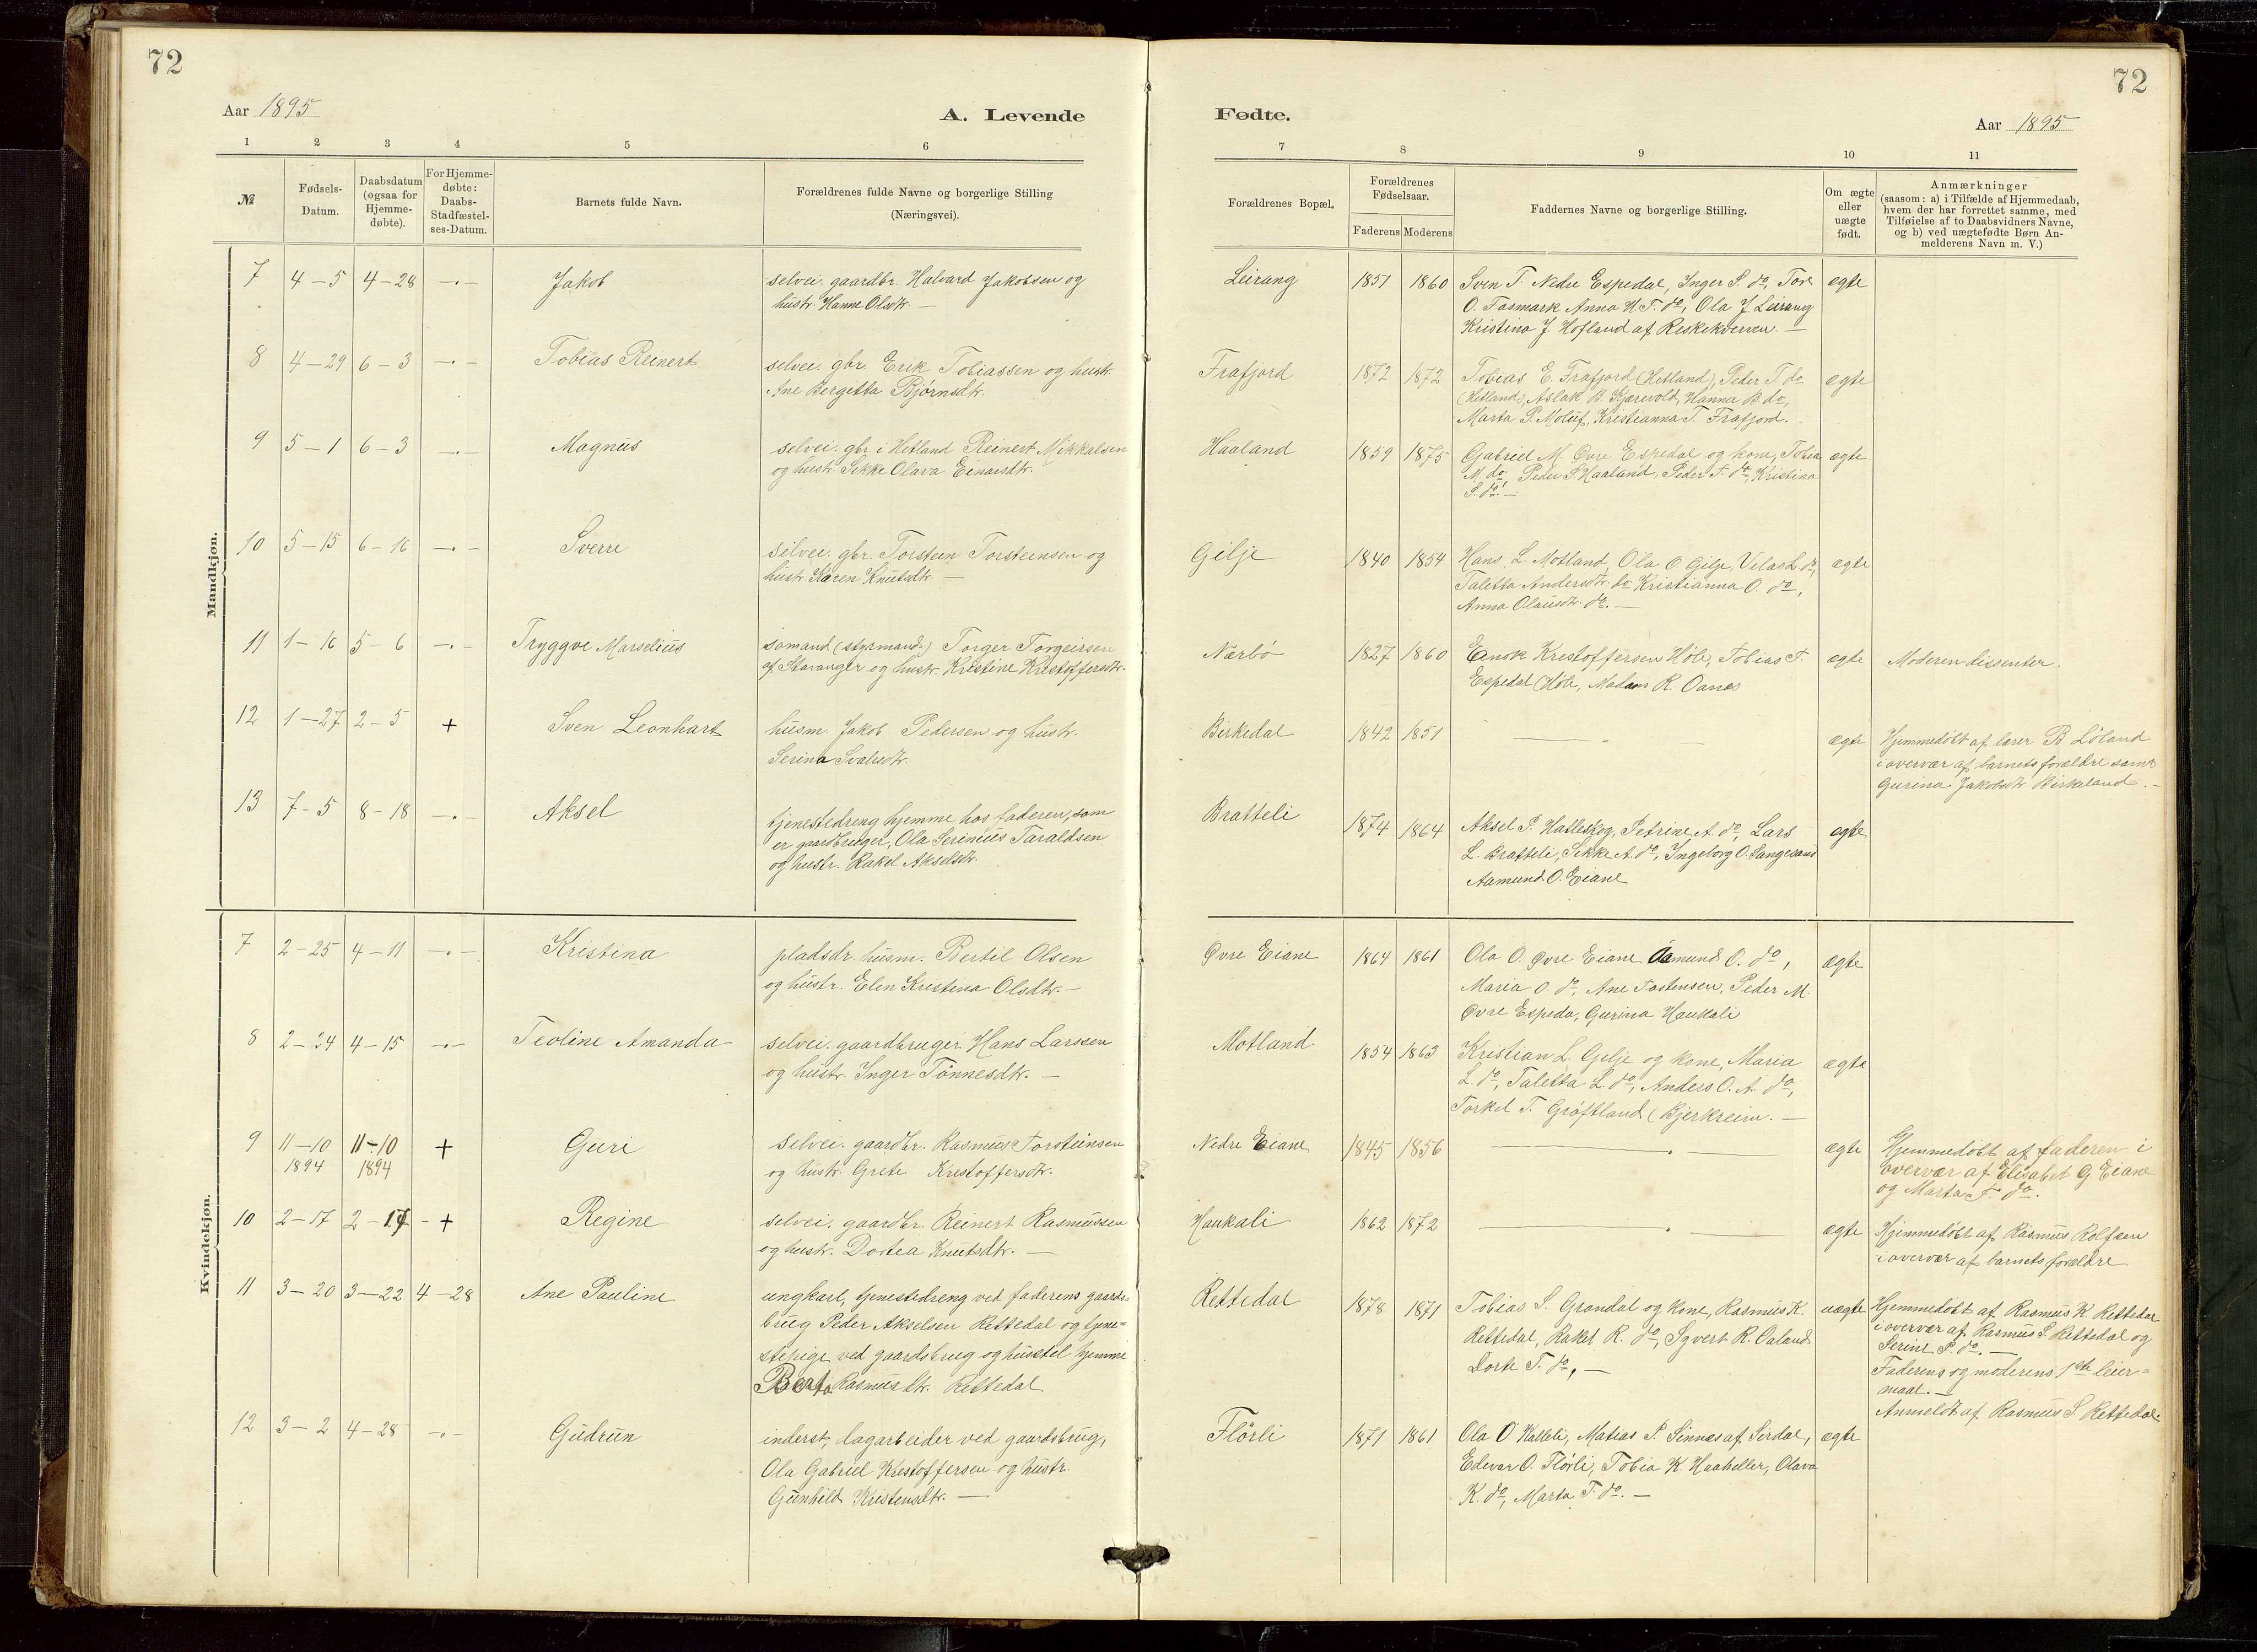 72
72
Aar 1895
A. Levende
Fødte.
Aar 1895
1 2 3 4 5 6 7 8 9 10 11
№
Fødsels-Datum.
Daabsdatum (ogsaa for Hjemmedøbte).
For Hjemmedøbte: Daabs-Stadfæstelses-Datum.
Barnets fulde Navn.
Forældrenes fulde Navne og borgerlige Stilling
(Næringsvei).
Forældrenes Bopæl.
Forældrenes Fødselsaar.
Faderens Moderens
Faddernes Navne og borgerlige Stilling.
Om ægte eller uægte født.
Anmærkninger
(saasom: a) i Tilfælde af Hjemmedaab,
hvem der har forrettet samme, med
Tilføielse af to Daabsvidners Navne,
og b) ved uægtefødte Børn Anmelderens Navn m. V.)
Mandkjøn.
7 4–5 4–28 –·– Jakob
selvei. gaardbr. Halvard Jakobsen og
hustr. Hanne Olsdtr. –
Leirang 1851 1860
Sven T. Nedre Espedal, Inger S. do, Tore
O. Fosmark Anna H T. do, Ola J. Leirang
Kristina J. Hofland af Reskekverven. –
egte
8 4–29 6–3 –·– Tobias Reinert
selvei. gbr. Erik Tobiassen og hustr.
Ane Bergetta Bjørnsdtr.
Frafjord 1872 1872
Tobias E. Frafjord (Hetland), Peder T. do
(Hetland), Aslak B. Kjærevold, Hanna B. do,
Marta P. Moluf, Kristianna T. Frafjord.
ægte
9 5–1 6–3 –·– Magnus
selvei. gbr. i Hetland Reinert Mikkalsen
og hustr. Sikke Olava Einarsdtr.
Haaland 1859 1875
Gabriel M. Øvre Espedal og kone, Tobia
M. do, Peder S. Haaland, Peder T. do, Kristina
S. do. –
egte
10 5–15 6–16 –·– Sverre
selvei. gbr. Torstein Torsteinsen og
hustr. Karen Knutsdtr. –
Gilje 1840 1854
Hans L. Motland, Ola O Gilje, Velas L. do,
Taletta Andersdtr. do Kristianna O. do,
Anna Olausdtr. do. –
ægte
11 1–16 5–6 –·– Tryggve Marselius
sømand (styrmand) Torger Torgeirsen
af Stavanger og hustr. Kristine Kristoffersdtr.
Nærbø 1827 1860
Enok Kristoffersen Høle, Tobias T.
Espedal (Høle, Madam R. Oanes
ægte
Moderen dissenter.
12 1–27 2–5 + Sven Leonhart
husm. Jakob Pedersen og hustr.
Serina Svalesdtr.
Birkedal 1842 1851
ægte
Hjemmedøbt af lærer B Løland
i overvær af barnets forældre samt
Gurina Jakobsdtr Birkeland. –
13 7–5 8–18 –·– Aksel
tjenestedreng hjemme hos faderen, som
er gaardbruger, Ola Serinius Taraldsen
og hustr. Rakel Akselsdtr.
Bratteli 1874 1864
Aksel P. Hatleskog, Petrine A. do, Lars
L. Bratteli, Sikke A. do, Ingeborg O. Sangesand
Aamund O. Eiane
egte
Kvindekjøn.
7 2–25 4–11 –·– Kristina
pladsdr. husm. Bertil Olsen
og hustr. Elen Kristina Olsdtr. –
Øvre Eiane 1864 1861
Ola O. Øvre Eiane Aamund O. do,
Maria O. do, Ane Tostensen, Peder M.
Øvre Espeda, Gurina Haukali
ægte
8 2–24 4–15 –·– Teoline Amanda
selvei. gaardbruger Hans Larssen
og hustr. Inger Tønnesdtr. –
Motland 1854 1863
Kristian L. Gilje og kone, Maria
L. do, Taletta L. do, Anders O. A. do,
Torkel T. Grøftland (Bjerkreim. –
ægte
9 11–10 1894 11–10 1894 + Guri
selvei. gaardbr. Rasmus Torsteinsen
og hustr. Grete Kristoffersdtr.
Nedre Eiane 1845 1856
ægte
Hjemmedøbt af faderen i
overvær af Elisabet G. Eiane
og Marta T. do.
10 2–17 2–17 + Regine
selvei. gaardbr. Reinert Rasmussen
og hustr. Dortea Knutsdtr. –
Haukali 1862 1872
ægte
Hjemmedøbt af Rasmus Rolfsen
i overvær af barnets forældre
11 3–20 3–22 4–28 Ane Pauline
ungkarl, tjenestedreng ved faderens gaards-
brug Peder Akselsen Rettedal og tjene-
stepige ved gaardsbrug og husstel hjemme
Berta Rasmusdtr. Rettedal
Rettedal 1878 1871
Tobias S. Grøndal og kone, Rasmus K.
Rettedal, Rakel R. do, Syvert R. Oaland
Dorte T. do, –
uægte
Hjemmedøbt af Rasmus K Rettedal
i overvær af Rasmus S. Rettedal og
Serine P. do. –
Faderens og moderens 1ste leier-
maal. –
Anmeldt af Rasmus S. Rettedal.
12 3–2 4–28 –·– Gudrun
inderst, dagarbeider ved gaardsbrug,
Ola Gabriel Kristoffersen og hustr.
Gunhild Kristensdtr. –
Flørli 1871 1861
Ola O Kalleli, Matias P. Sinnes af Sirdal,
Edevar O. Flørli, Tobia K. Haaheller, Olava
K. do, Marta T. do. –
ægte